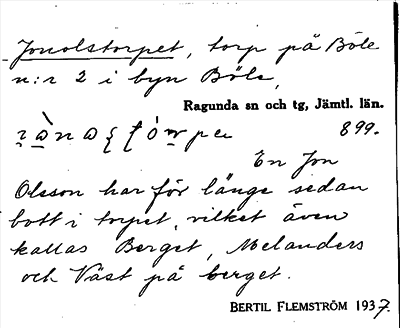 Jonolstorpet, torp på Böle
n:r 2 i byn Böle,
Ragunda sn och tg, Jämtl. län.
899.
En Jon
Olsson har för länge sedan
bott i torpet, vilket även
kallas Berget, Melanders
och Väst på berget.
BERTIL FLEMSTRÖM 1937.